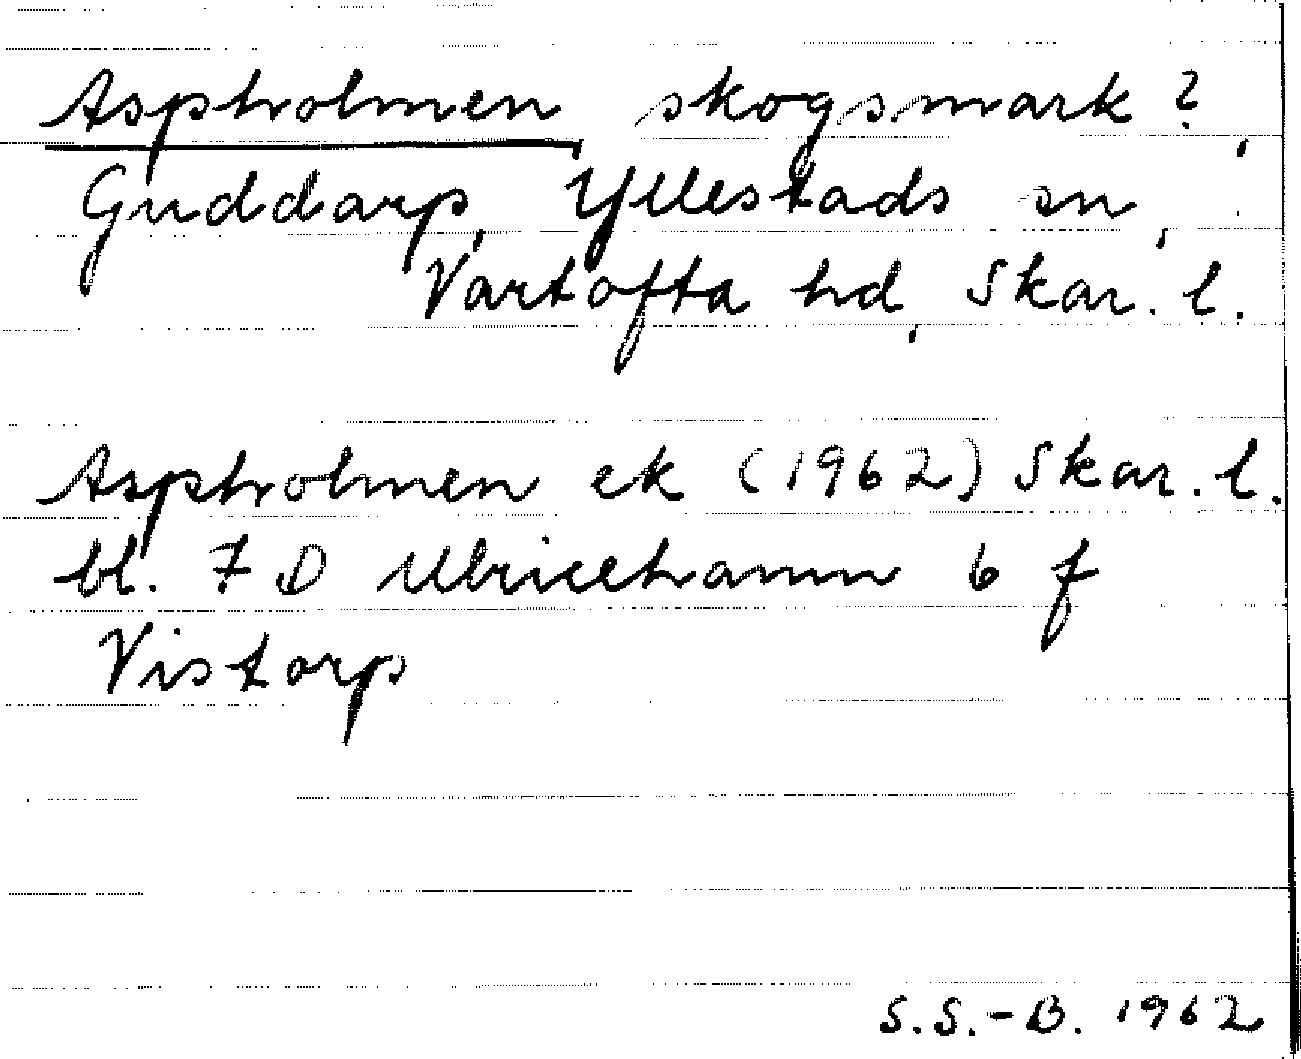 Aspholmen skogsmark?,
Guddarp, Yllestads sn,
Vartofta hd, Skar. l.
Aspholmen ek (1962) Skar. l.
bl. 7 D Ulricehamn 6 f
Vistorp
S.S.-B. 1962